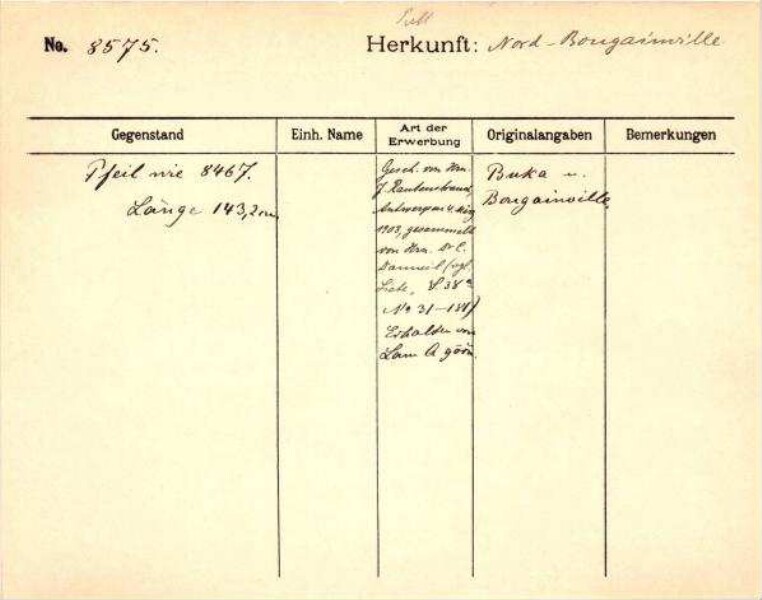 No. 8575.
Herkunft: Nord-Bougainville
Gegenstand
Einh. Name
Art der
Erwerbung
Originalangaben
Bemerkungen
Pfeil wie 8467.
Länge 143,2 cm
Gesch. von Hrn.
J. Rautenstrauch,
Antwerpen 4.
1903, gesammelt
von Hrn. Dr C.
(vgl.
Liste, S. 38a
No 31-
Erhalten von
Lam A
Buka u.
Bougainville,